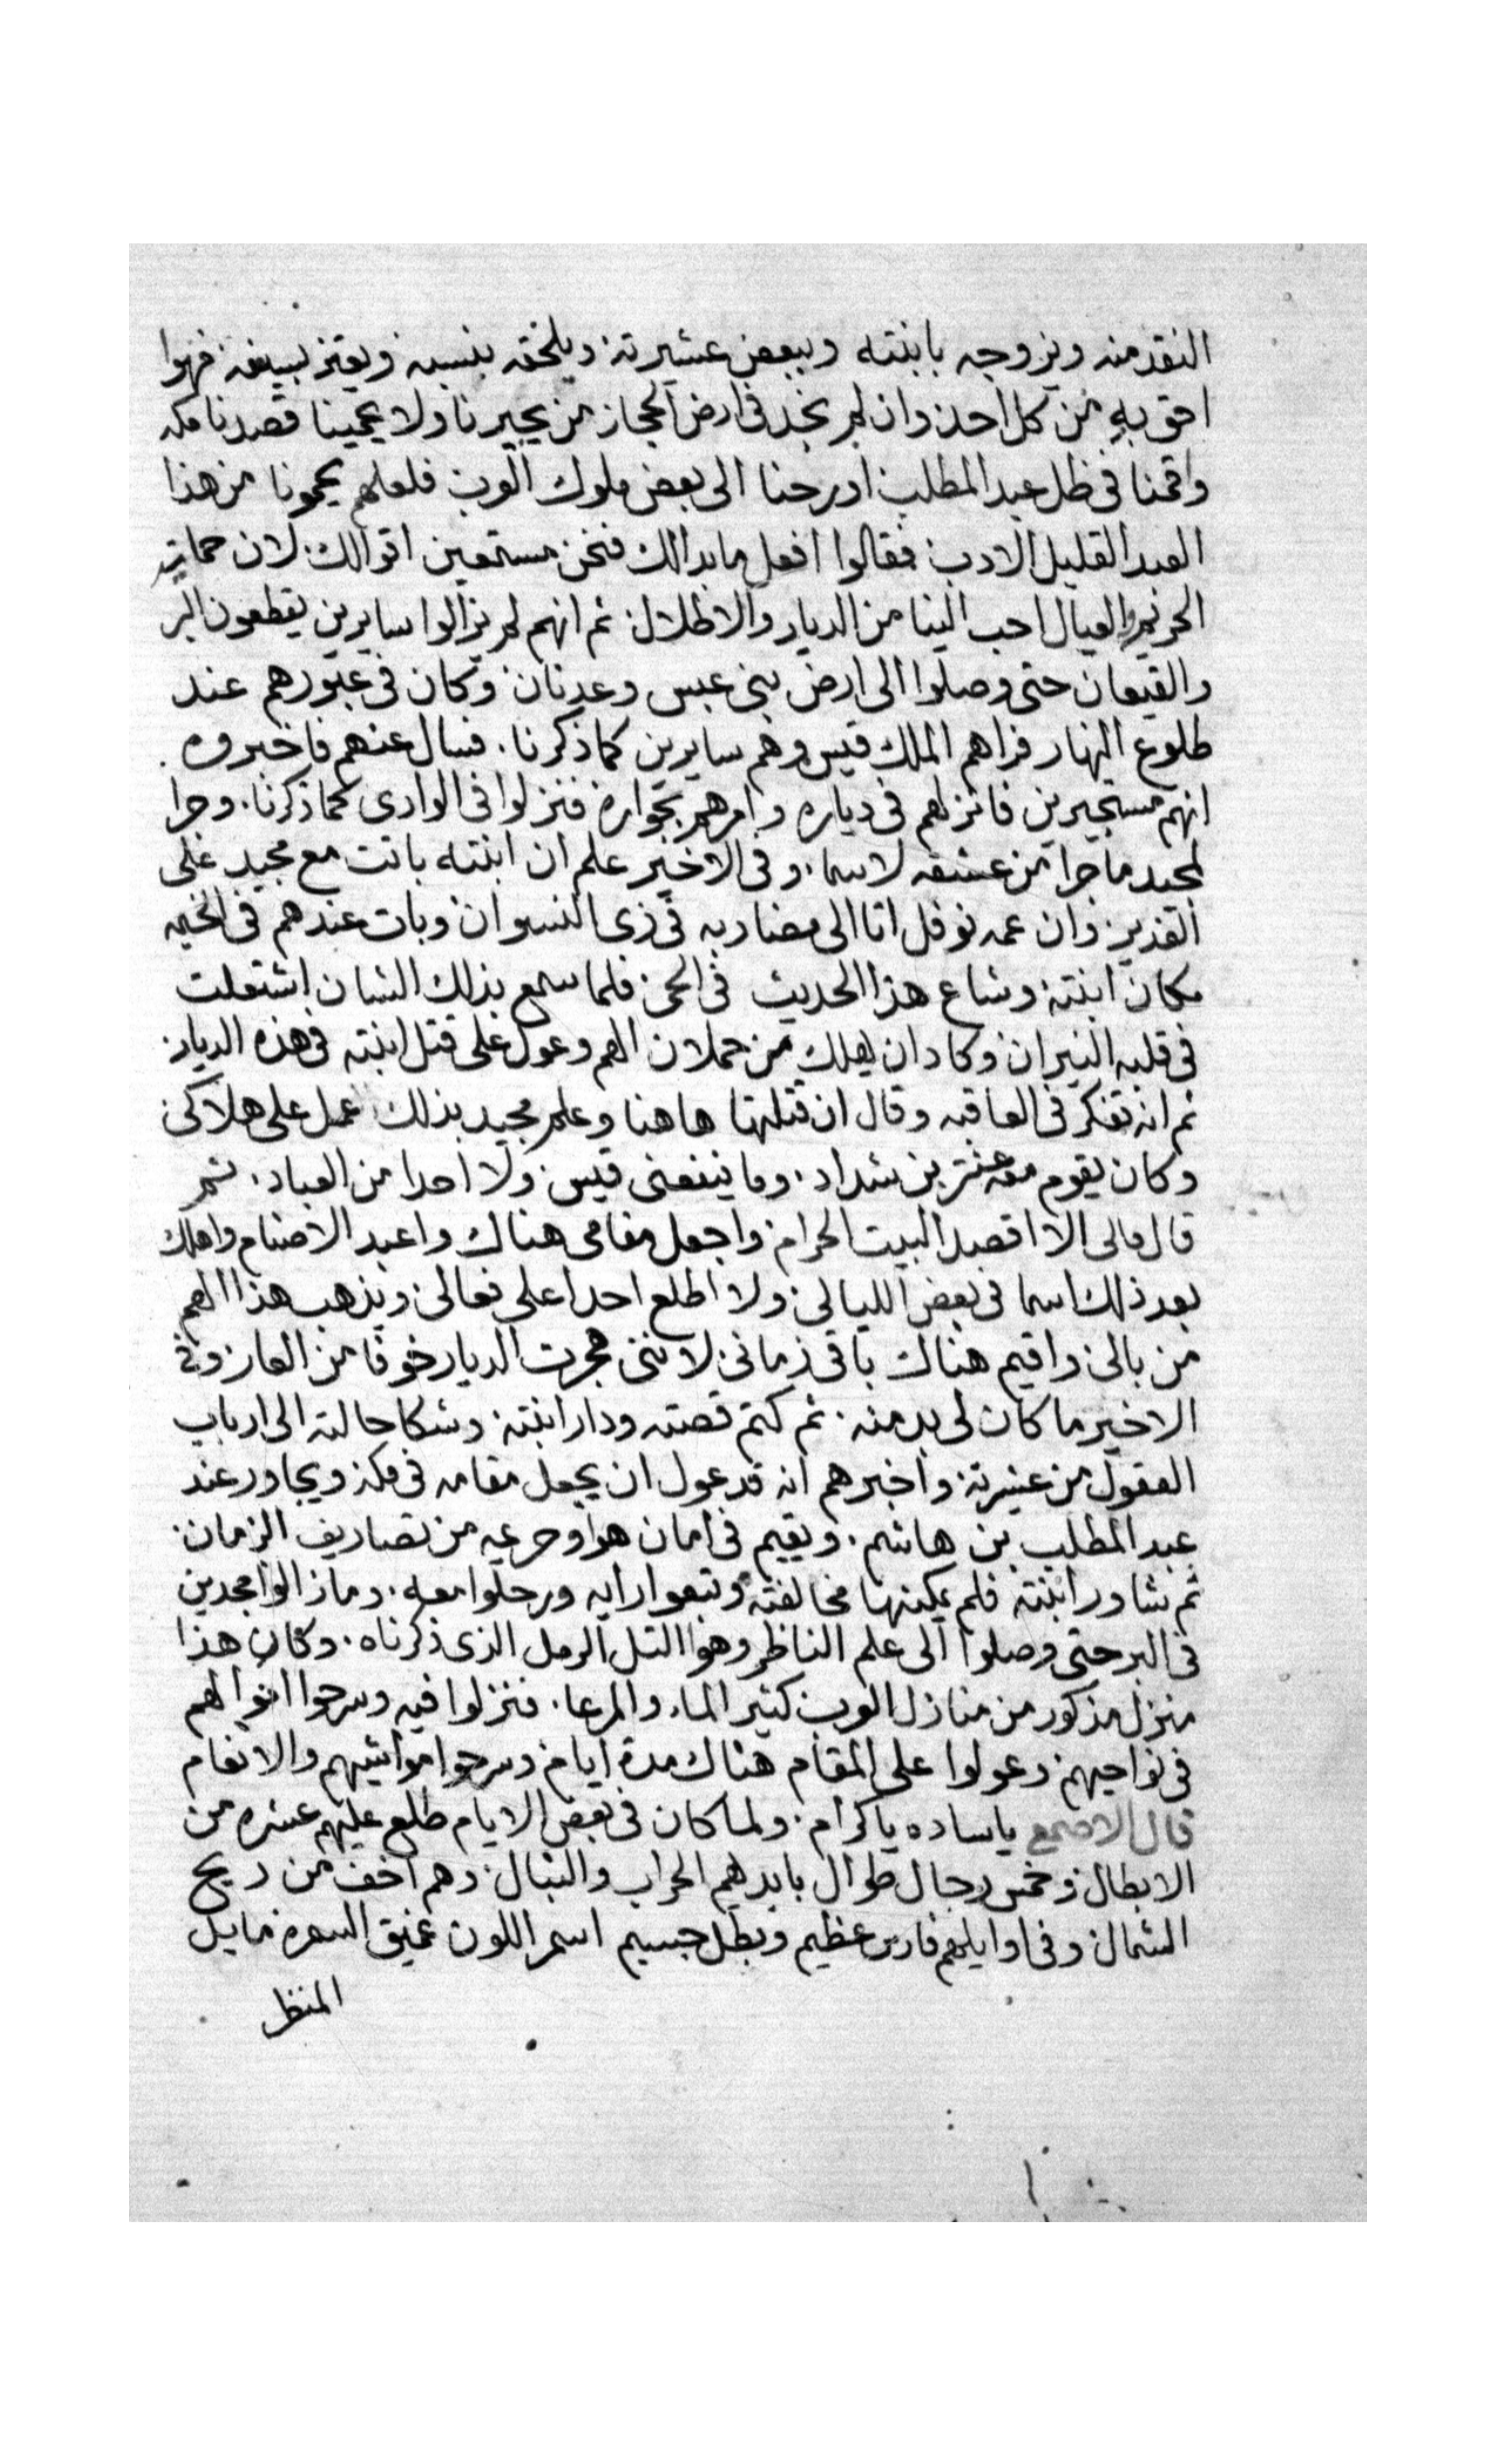 النقد منه ويزوجه بابنته وببعض عشيرته ويلحقه بنسبه ويعتز بسيفه فهوا
احق به من كل احد وان لم نجد فى ارض الحجاز من يجيرنا ولا يحمينا قصدنا مكه
واقمنا فى ظل عبد المطلب او رحنا الى بعض ملوك العرب فلعلهم يحمونا من هذا
العبد القليل الادب فقالوا افعل ما بدالك فنحن مستمعين اقوالك لان حماية
الحريم والعيال احب الينا من الديار والاطلال ثم انهم لم يزالوا سايرين يقطعون البر
والقيعان حتى وصلوا الى ارض بنى عبس وعدنان وكان فى عبورهم عند
طلوع النهار فراهم الملك قيس وهم سايرين كما ذكرنا. فسال عنهم فاخبروه
انهم مستجيرين فانزلهم فى دياره وامرهم بجواره فنزلوا فى الوادى كما ذكرنا. وجرا
لمجيد ما جرا من عشقه لاسما. وفى الاخير علم ان ابنته باتت مع مجيد على
الغدير وان عمه نوفل اتا الى مضاربه فى زى النسوان وبات عندهم فى الخيمه
مكان ابنته وشاع هذا الحديث فى الحى فلما سمع بذلك الشان اشتعلت
فى قلبه النيران وكاد ان يهلك من حملان الهم وعول على قتل ابنته فى هذه الديار
ثم انه تفكر فى العاقبه وقال ان قتلتها هاهنا وعلم مجيد بذلك عمل على هلاكى
وكان يقوم معه عنتر بن شداد. وما ينفعنى قيس ولا احدا من العباد. ثم
قال مالى الا اقصد البيت الحرام واجعل مقامى هناك واعبد الاصنام واهلك
بعد ذلك اسما فى بعض الليالى ولا اطلع احدا على فعالى ويذهب هذا الهم
من بالى واقيم هناك باقى زمانى لاننى هجرت الديار خوفا من العار وفى
الاخير ما كان لى بد منه. ثم كتم قصته ودارا ابنته وشكا حالته الى ارباب
العقول من عشيرته واخبرهم انه قد عول ان يجعل مقامه فى مكه ويجاور عند
عبد المطلب بن هاشم. ويقيم فى امان هوا وحريمه من تصاريف الزمان
ثم شاور ابنته فلم يمكنها مخالفته وتبعوا رايه ورحلوا معه. وما زالوا مجدين
فى البر حتى وصلوا الى علم الناظر وهوا التل الرمل الذى ذكرناه. وكان هذا
منزل مذكور من منازل العرب كثير الماء والمرعا. فنزلوا فيه وسرحوا اموالهم
فى نواحيهم وعولوا على المقام هناك مدة ايام وسرحوا مواشيهم والانعام
قال الاصمع ياساده ياكرام. ولما كان فى بعض الايام طلع عليهم عشره من
الابطال وخمس رجال طوال بايدهم الحراب والنبال وهم اخف من ريح
الشمال وفى اوايلهم فارس عظيم وبطل جسيم اسمر اللون عميق السمره مايل
المنظر